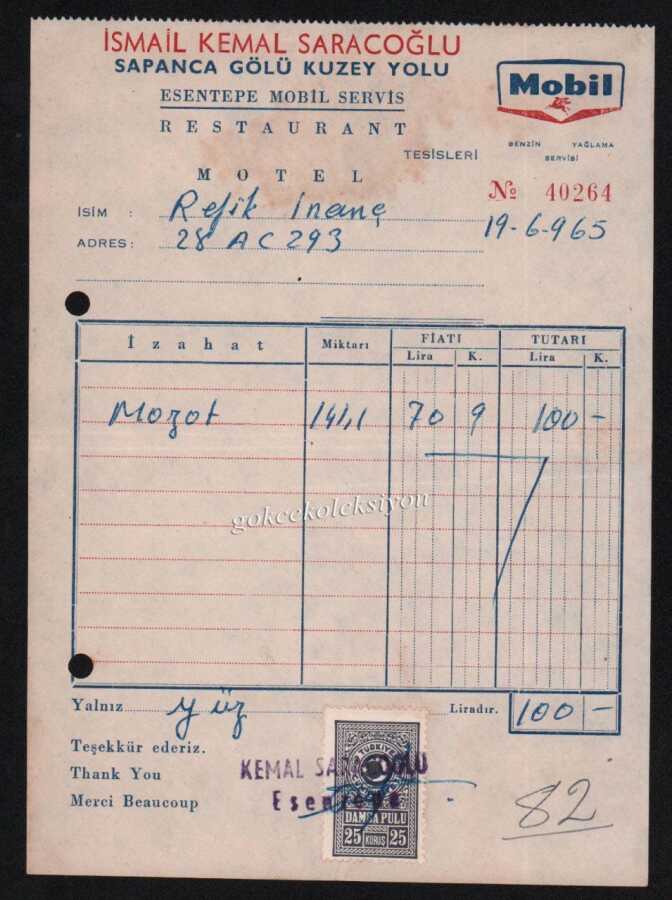 İSMAİL KEMAL SARACOĞLU
SAPANCA GÖLÜ KUZEY YOLU
ESENTEPE MOBİL SERVİS
RESTAURANT
TESİSLERİ
MOTEL
Mobil
BENZİN YAĞLAMA
SERVİSİ
No 40264
19-6-965
İSİM : Refik inanç
ADRES : 28 AC 293
İzahat Miktarı FİATI TUTARI
Lira K. Lira K.
Mozot 141,1 70 9 100 -
gokcekoleksiyon
Yalnız yüz Liradır. 100 -
Teşekkür ederiz.
Thank You
Merci Beaucoup
KEMAL SARACOĞLU
Esentepe
TÜRKİYE
DAMGA PULU
25 KURUŞ 25
82